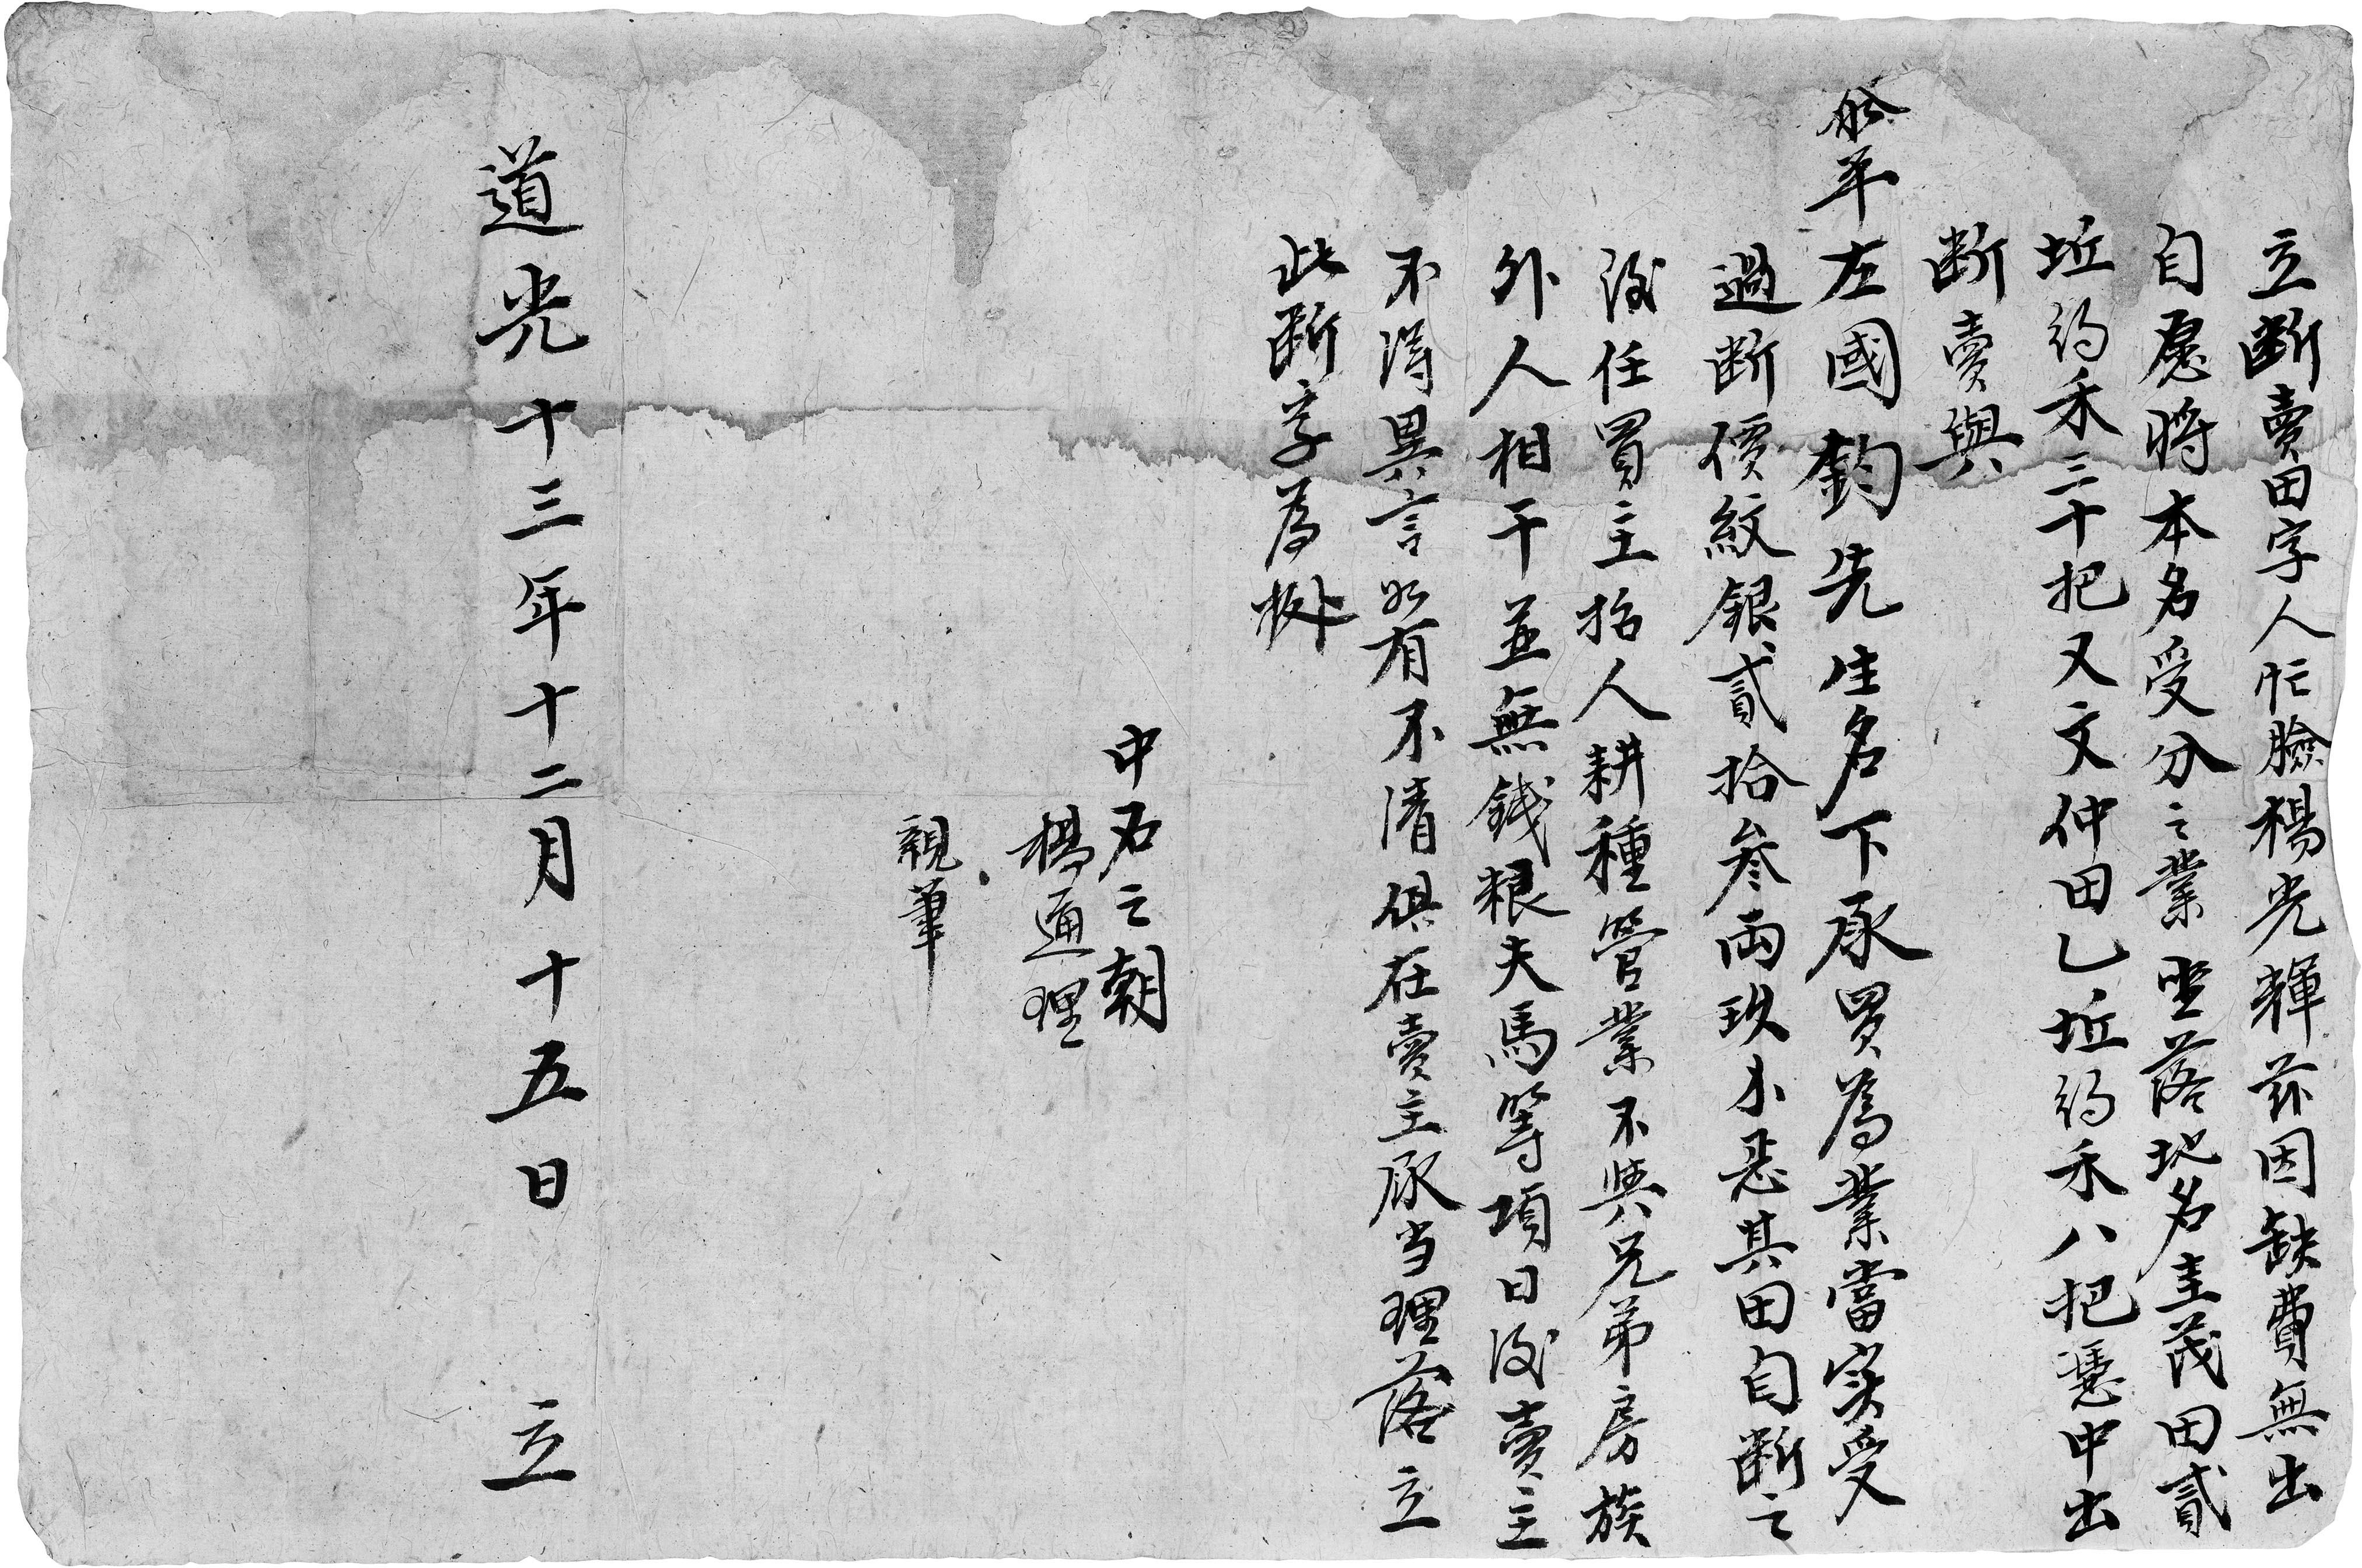 立断賣田字人忙臉楊光輝茲因缺費無出
自愿將本名受分之業坐落地名圭茂田貳
坵約禾三十把又文仲田乚坵約禾八把憑中出
断賣與
年左國鈞先生名下承買為業當实受
過断價紋銀貳拾參兩玖卜悬其田自断之
後任買主招人耕種管業不與兄弟房族
外人相干並無錢粮夫馬等項日後賣主
不得異言如有不清俱在賣主承当理落立
此断字為拠
中石之朝
楊通理
親筆
道光十三年十二月十五日 立